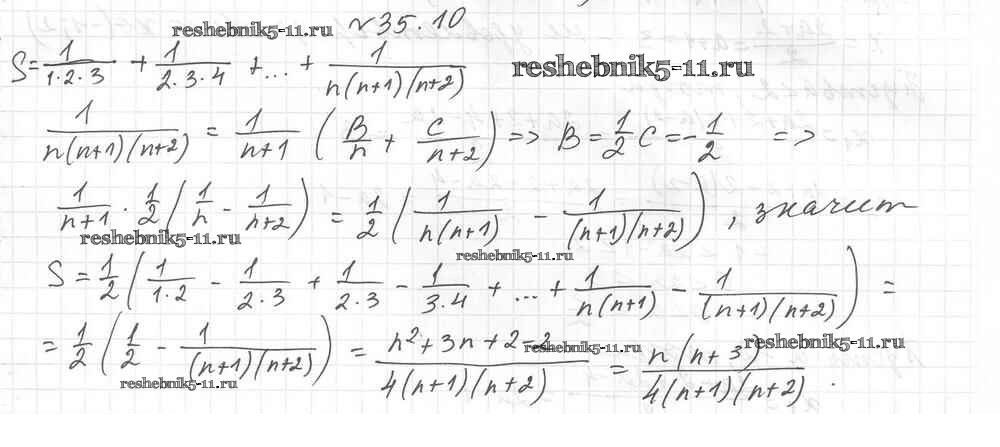 №35.10
reshebnik5-11.ru
S = 1/(1·2·3) + 1/(2·3·4) + ... + 1/(n(n+1)(n+2))
reshebnik5-11.ru
1/(n(n+1)(n+2)) = 1/(n+1) (B/n + C/(n+2)) => B = 1/2 C = -1/2 =>
1/(n+1) · 1/2 (1/n - 1/(n+2)) = 1/2 (1/(n(n+1)) - 1/((n+1)(n+2))), значит
reshebnik5-11.ru
reshebnik5-11.ru
S = 1/2 (1/(1·2) - 1/(2·3) + 1/(2·3) - 1/(3·4) + ... + 1/(n(n+1)) - 1/((n+1)(n+2))) =
= 1/2 (1/2 - 1/((n+1)(n+2))) = (n²+3n+2-2)/(4(n+1)(n+2)) = n(n+3)/(4(n+1)(n+2)).
reshebnik5-11.ru
reshebnik5-11.ru
reshebnik5-11.ru